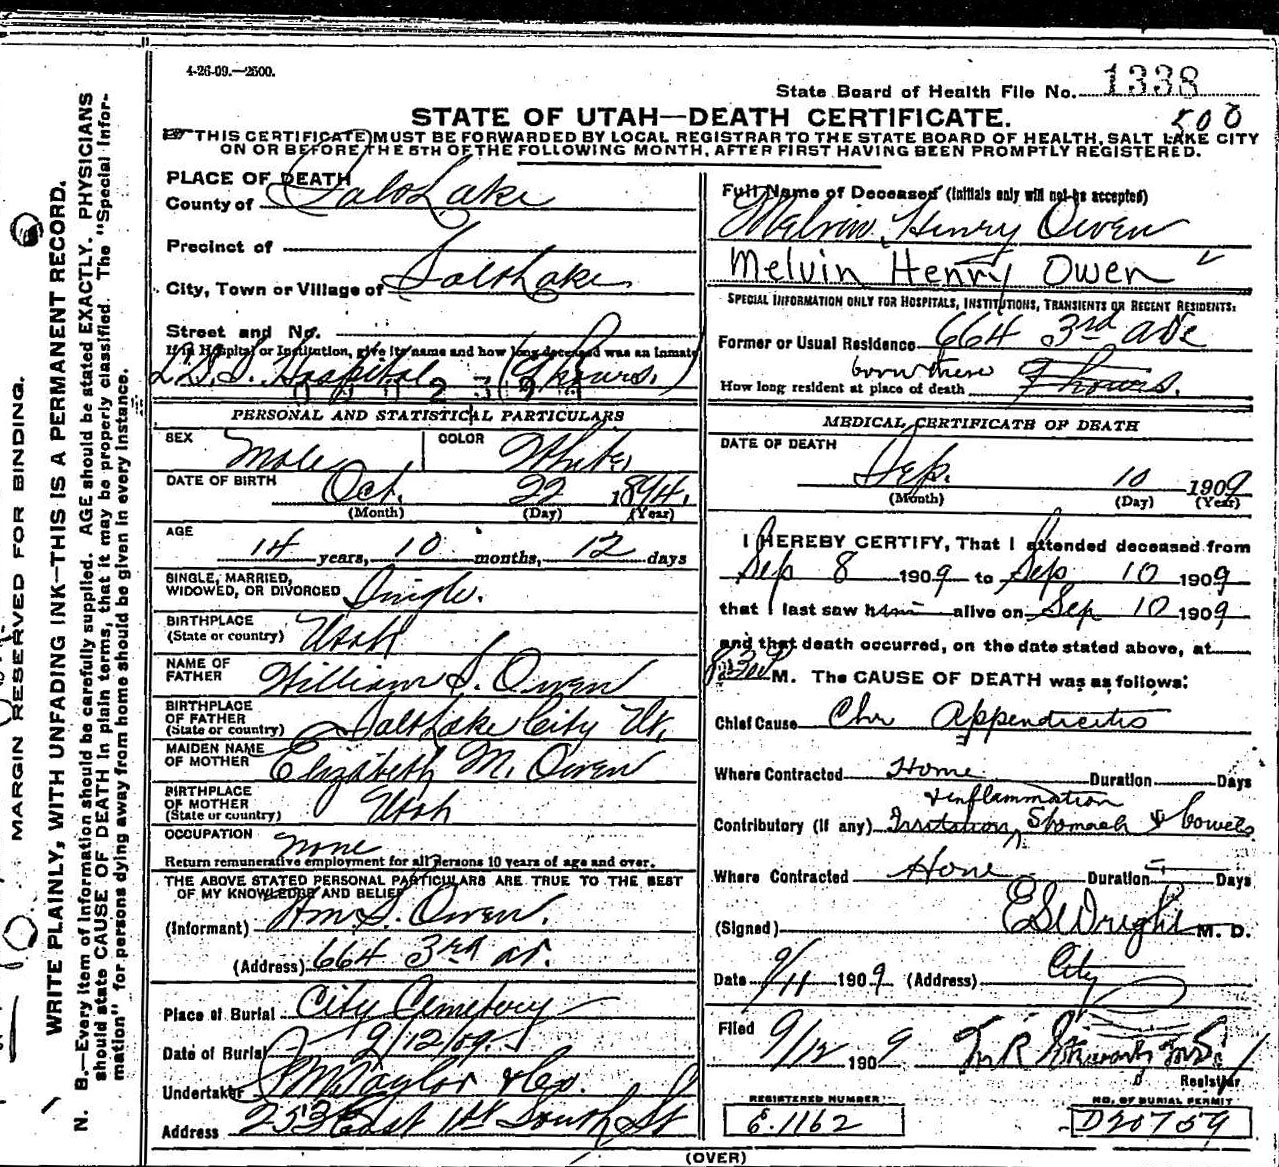 4-26-09.—2500.
State Board of Health File No. 1338
STATE OF UTAH—DEATH CERTIFICATE.
500
THIS CERTIFICATE MUST BE FORWARDED BY LOCAL REGISTRAR TO THE STATE BOARD OF HEALTH, SALT LAKE CITY
ON OR BEFORE THE 5TH OF THE FOLLOWING MONTH, AFTER FIRST HAVING BEEN PROMPTLY REGISTERED.
PLACE OF DEATH
County of Salt Lake
Precinct of
City, Town or Village of Salt Lake
Street and No.
If in Hospital or Institution, give its name and how long deceased was an inmate
L.D.S. Hospital (9 hours.)
PERSONAL AND STATISTICAL PARTICULARS
SEX Male COLOR White
DATE OF BIRTH Oct. 22 1894.
(Month) (Day) (Year)
AGE
14 years, 10 months, 12 days
SINGLE, MARRIED,
WIDOWED, OR DIVORCED Single.
BIRTHPLACE
(State or country) Utah
NAME OF
FATHER William S. Owen
BIRTHPLACE
OF FATHER
(State or country) Salt Lake City Ut.
MAIDEN NAME
OF MOTHER Elizabeth M. Owen
BIRTHPLACE
OF MOTHER
(State or country) Utah
OCCUPATION none
Return remunerative employment for all persons 10 years of age and over.
THE ABOVE STATED PERSONAL PARTICULARS ARE TRUE TO THE BEST
OF MY KNOWLEDGE AND BELIEF
(Informant) Wm S. Owen.
(Address) 664 3rd av.
Place of Burial City Cemetery
Date of Burial 9/12/09.
Undertaker Taylor & Co.
Address 253 East 1st South St
Full Name of Deceased (Initials only will not be accepted)
Melvin Henry Owen
Melvin Henry Owen
SPECIAL INFORMATION ONLY FOR HOSPITALS, INSTITUTIONS, TRANSIENTS OR RECENT RESIDENTS.
Former or Usual Residence 664 3rd ave
born there
How long resident at place of death 9 hours.
MEDICAL CERTIFICATE OF DEATH
DATE OF DEATH
Sep. 10 1909
(Month) (Day) (Year)
I HEREBY CERTIFY, That I attended deceased from
Sep 8 1909 to Sep 10 1909
that I last saw him alive on Sep 10 1909
and that death occurred, on the date stated above, at
M. The CAUSE OF DEATH was as follows:
Chief Cause Chr Appendicitis
Where Contracted Home Duration Days
& inflammation
Contributory (if any) Irritation Stomach & bowels
Where Contracted Home Duration Days
(Signed) E S Wright M. D.
Date 9/11 1909 (Address) City
Filed 9/12 1909
Registrar
REGISTERED NUMBER
E.1162
NO. OF BURIAL PERMIT
D20759
(OVER)
MARGIN RESERVED FOR BINDING.
WRITE PLAINLY, WITH UNFADING INK—THIS IS A PERMANENT RECORD.
N. B.—Every item of information should be carefully supplied. AGE should be stated EXACTLY. PHYSICIANS
should state CAUSE OF DEATH in plain terms, that it may be properly classified. The "Special Infor-
mation" for persons dying away from home should be given in every instance.